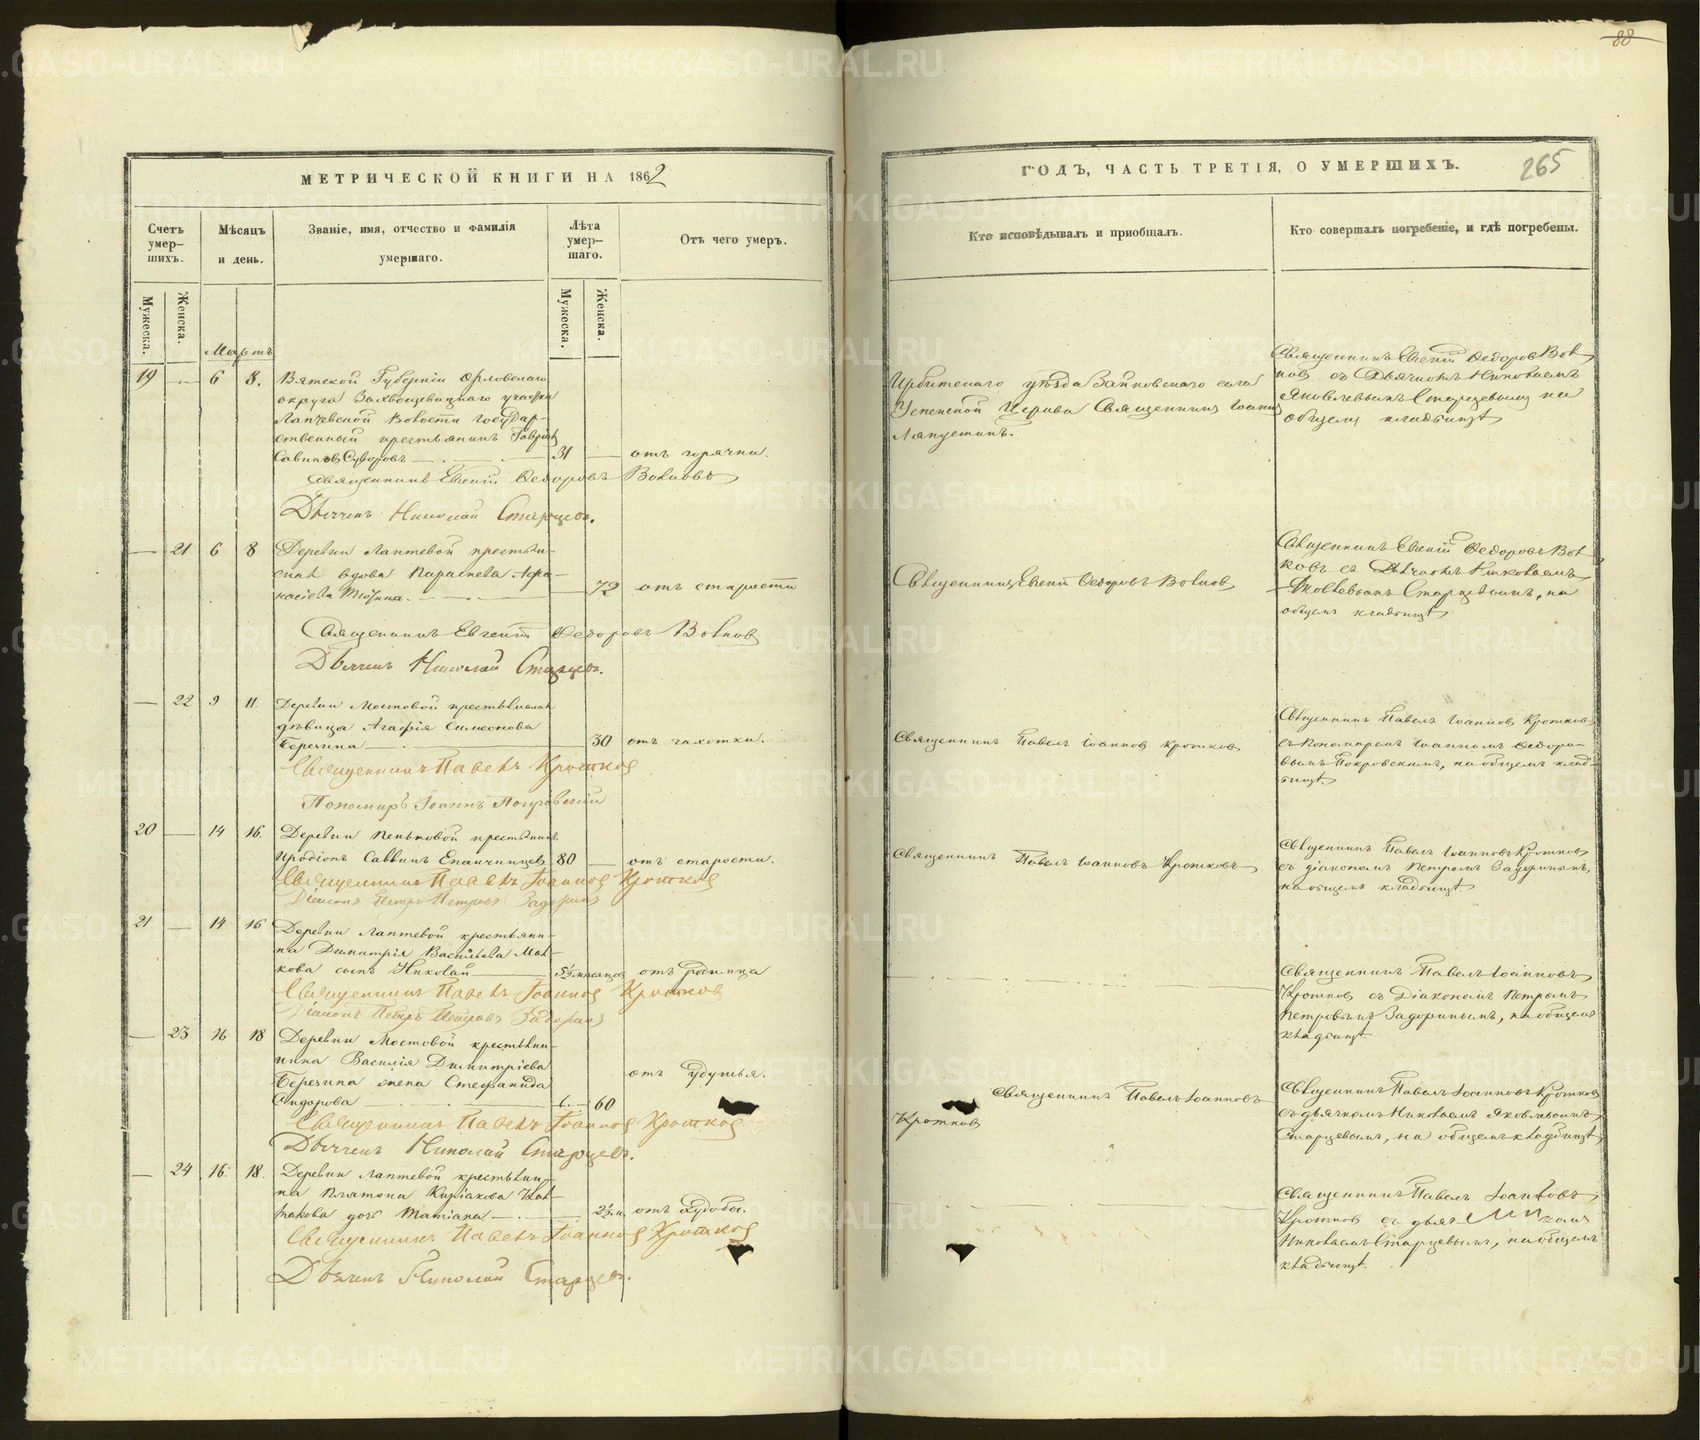 88
МЕТРИЧЕСКОЙ КНИГИ НА 1862
ГОДЪ, ЧАСТЬ ТРЕТІЯ, О УМЕРШИХЪ.
265
Счетъ умер-шихъ.
Мѣсяцъ и день.
Званіе, имя, отчество и фамилія умершаго.
Лѣта умер-шаго.
Отъ чего умеръ.
Кто исповѣдывалъ и пріобщалъ.
Кто совершалъ погребеніе, и гдѣ погребены.
Мужеска.
Женска.
Мужеска.
Женска.
Мартъ
19 — 6 8.
Вятской Губерніи Орловскаго
округа
волости государ-
ственный крестьянинъ
Савиновъ Суворовъ 31 — отъ горячки.
Священникъ Евгеній Ѳедоровъ Волковъ
Дьячекъ Николай Старцевъ.
Ирбитскаго уѣзда Зайковскаго села
Церкви Священникъ Іоаннъ
Ляпустинъ.
Священникъ Евгеній Ѳедоровъ Вол-
ковъ съ Дьячкомъ Николаемъ
Яковлевымъ Старцевымъ на
общемъ кладбищѣ
— 21 6 8
Деревни Лаптевой крестьян-
ская вдова Параскева Афа-
насіева — 72 отъ старости
Священникъ Евгеній Ѳедоровъ Волковъ
Дьячекъ Николай Старцевъ.
Священникъ Евгеній Ѳедоровъ Волковъ
Священникъ Евгеній Ѳедоровъ Вол-
ковъ съ Дьячкомъ Николаемъ
Яковлевымъ Старцевымъ, на
общемъ кладбищѣ.
— 22 9 11.
Деревни Мостовой крестьянская
дѣвица Агафія Симеонова
Березина 30 отъ чахотки.
Священникъ Павелъ Кротков
Пономарь Іоаннъ Покровскій
Священникъ Павелъ Іоанновъ Кротковъ
Священникъ Павелъ Іоанновъ Кротковъ
съ пономаремъ Іоанномъ Ѳедоро-
вымъ Покровскимъ, на общемъ клад-
бищѣ.
20 — 14 16.
Деревни крестьянинъ
Иродіонъ Саввинъ Епанчинцевъ 80 — отъ старости.
Священникъ Павелъ Іоанновъ Кротковъ
Діаконъ Петръ Петровъ Задоринъ
Священникъ Павелъ Іоанновъ Кротковъ
Священникъ Павелъ Іоанновъ Кротковъ
съ діакономъ Петромъ Задоринымъ,
на общемъ кладбищѣ
21 — 14 16
Деревни Лаптевой крестьяни-
на Димитрія Васильева Мал-
кова сынъ Николай 5½ мѣсяцевъ отъ родимца
Священникъ Павелъ Іоанновъ Кротковъ
Діаконъ Петръ Петровъ Задоринъ
Священникъ Павелъ Іоанновъ
Кротковъ съ Діакономъ Петромъ
Петровымъ Задоринымъ, на общемъ
кладбищѣ.
— 23 16 18
Деревни Мостовой крестьян-
нина Василія Димитріева
Березина жена Стефанида
Сидорова 60 отъ удушья.
Священникъ Павелъ Іоанновъ Кротков
Дьячекъ Николай Старцевъ.
Священникъ Павелъ Іоанновъ
Кротковъ
Священникъ Павелъ Іоанновъ Кротковъ
съ дьячкомъ Николаемъ Яковлевымъ
Старцевымъ, на общемъ кладбищѣ
— 24 16. 18.
Деревни Лаптевой крестьяни-
на Платона Киріакова
дочь Татіана 2½ м. отъ худобы.
Священникъ Павелъ Іоанновъ Кротков
Дьячекъ Николай Старцевъ.
Священникъ Павелъ Іоанновъ
Кротковъ съ дьяч-комъ
Николаемъ Старцевымъ, на общемъ
кладбищѣ.
METRIKI.GASO-URAL.RU